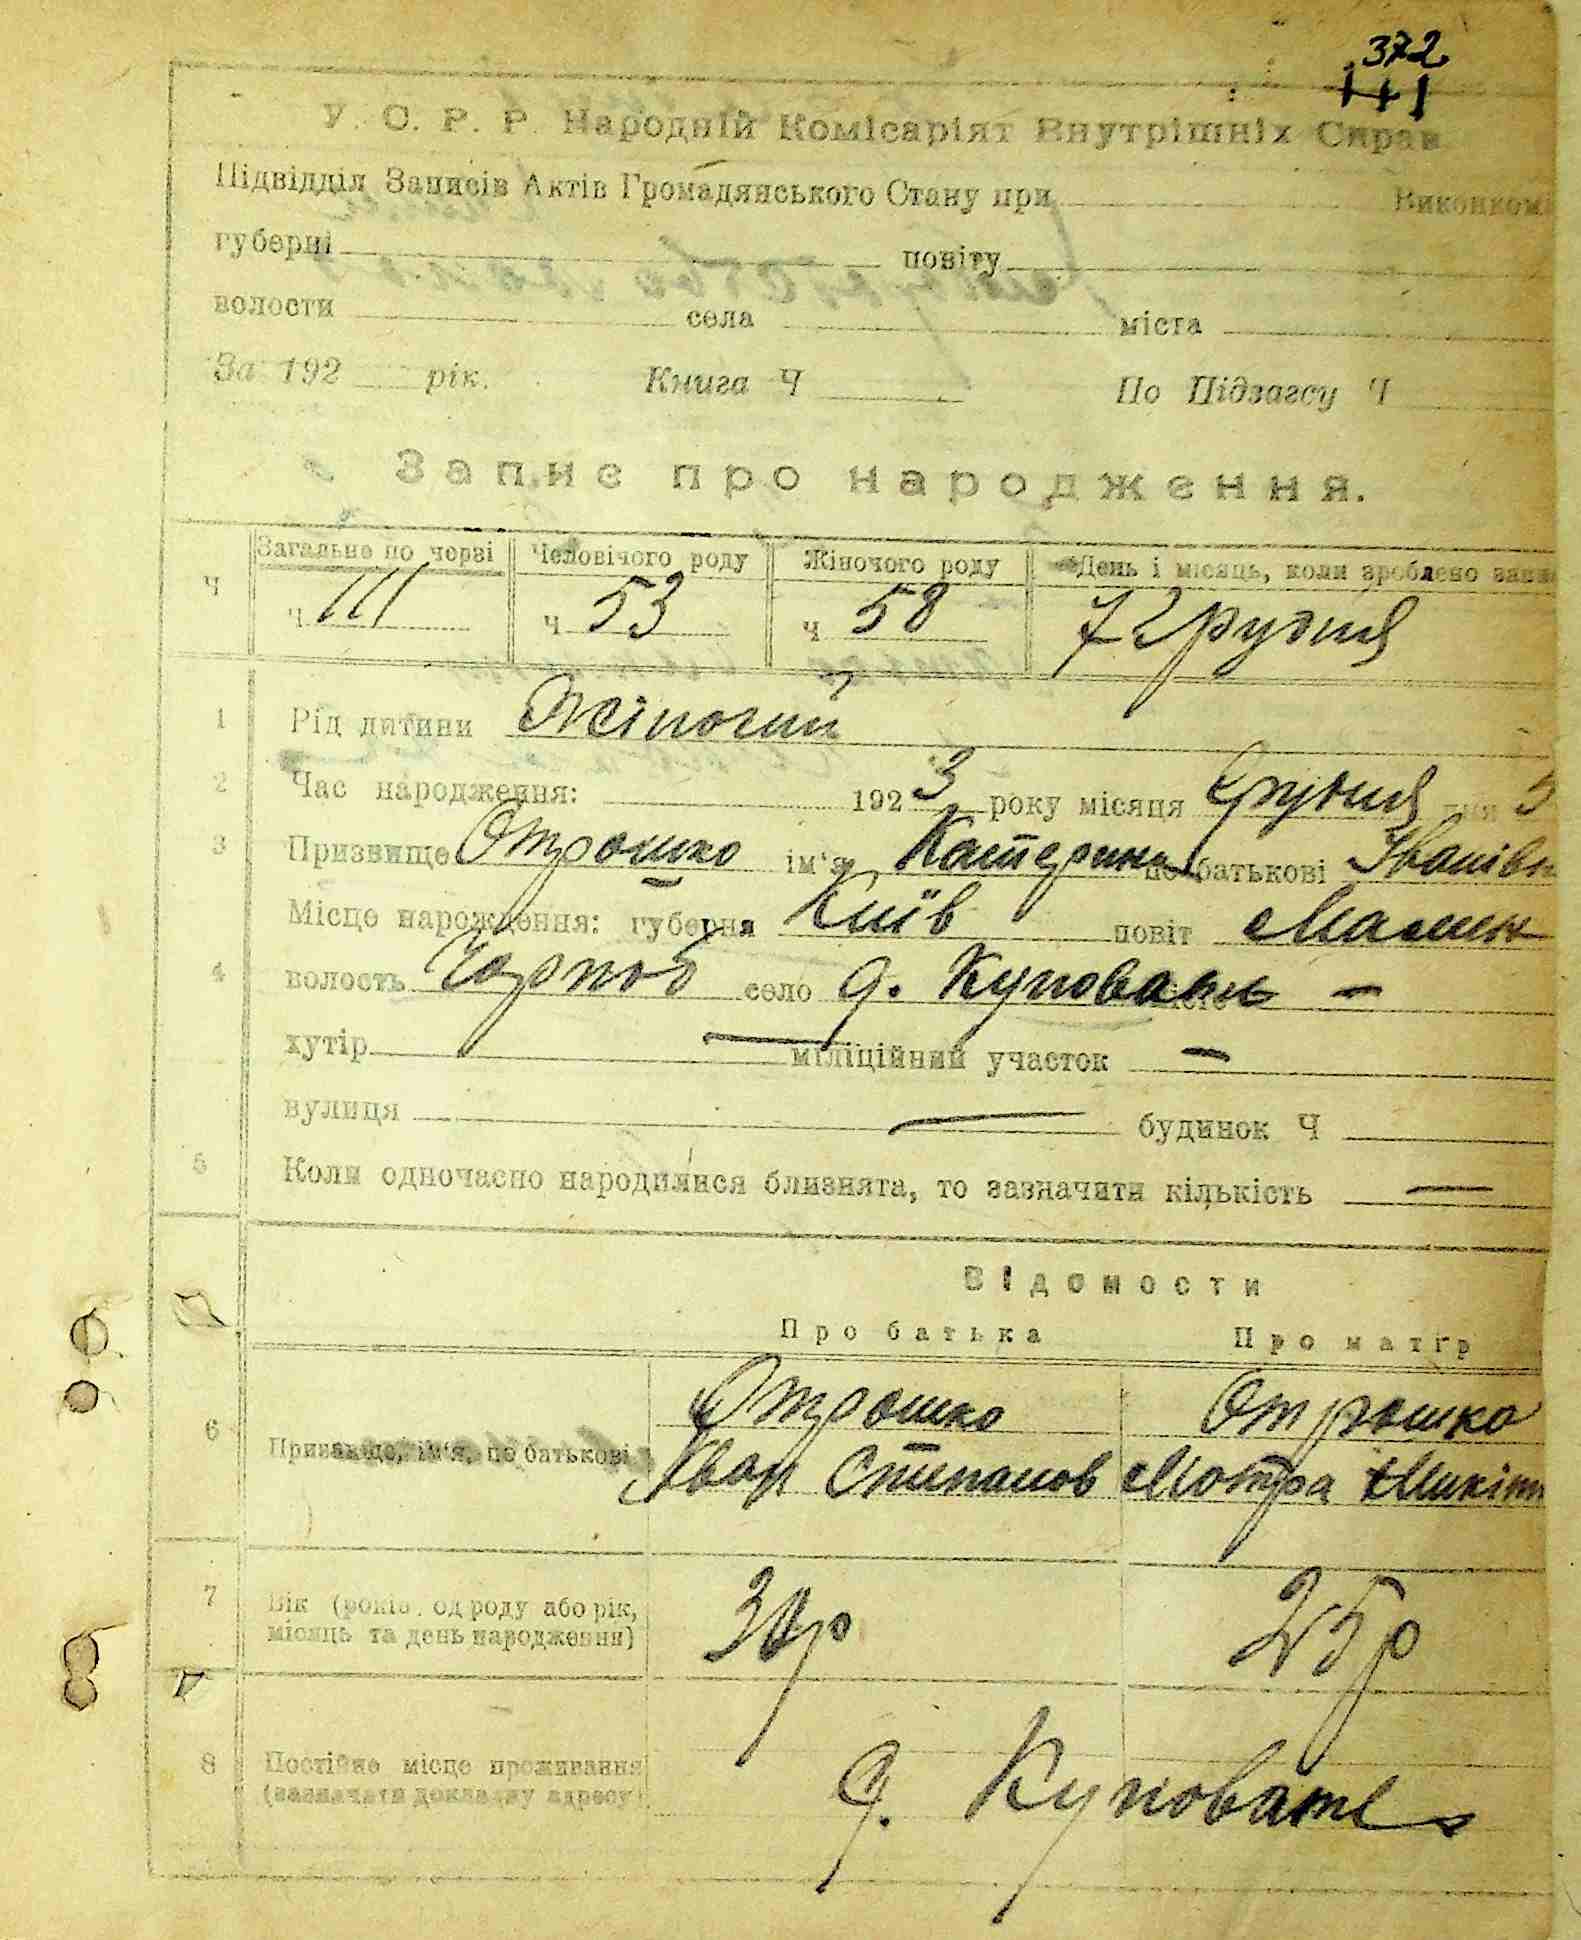 372
111
У. С. Р. Р. Народній Комісаріят Внутрішніх Справ
Підвідділ Записів Актів Громадянського Стану при Виконкомі
губерні повіту
волости села міста
За 192 рік. Книга Ч По Підзагсу Ч
Запис про народження.
Загальне по черзі Человічого роду Жіночого роду День і місяць, коли зроблено запис
Ч Ч 111 Ч 53 Ч 58 7 Грудня
1 Рід дитини Жіночий
2 Час народження: 1923 року місяця Грудня дня 5
3 Призвище Отрошко ім'я Катерина по батькові Іванівн
Місце народження: губерня Київ повіт Малин
4 волость Чорноб село д. Куповать –
хутір — міліційний участок –
вулиця — будинок Ч
5 Коли одночасно народилися близнята, то зазначити кількість —
Відомости
Про батька Про матір
6 Призвище, ім'я, по батькові Отрошко Отрошко
Іван Степанов Мотра Микіт
7 Вік (років од роду або рік, місяць та день народження) 30р 25р
8 Постійне місце проживання д. Куповать
(зазначати докладну адресу)